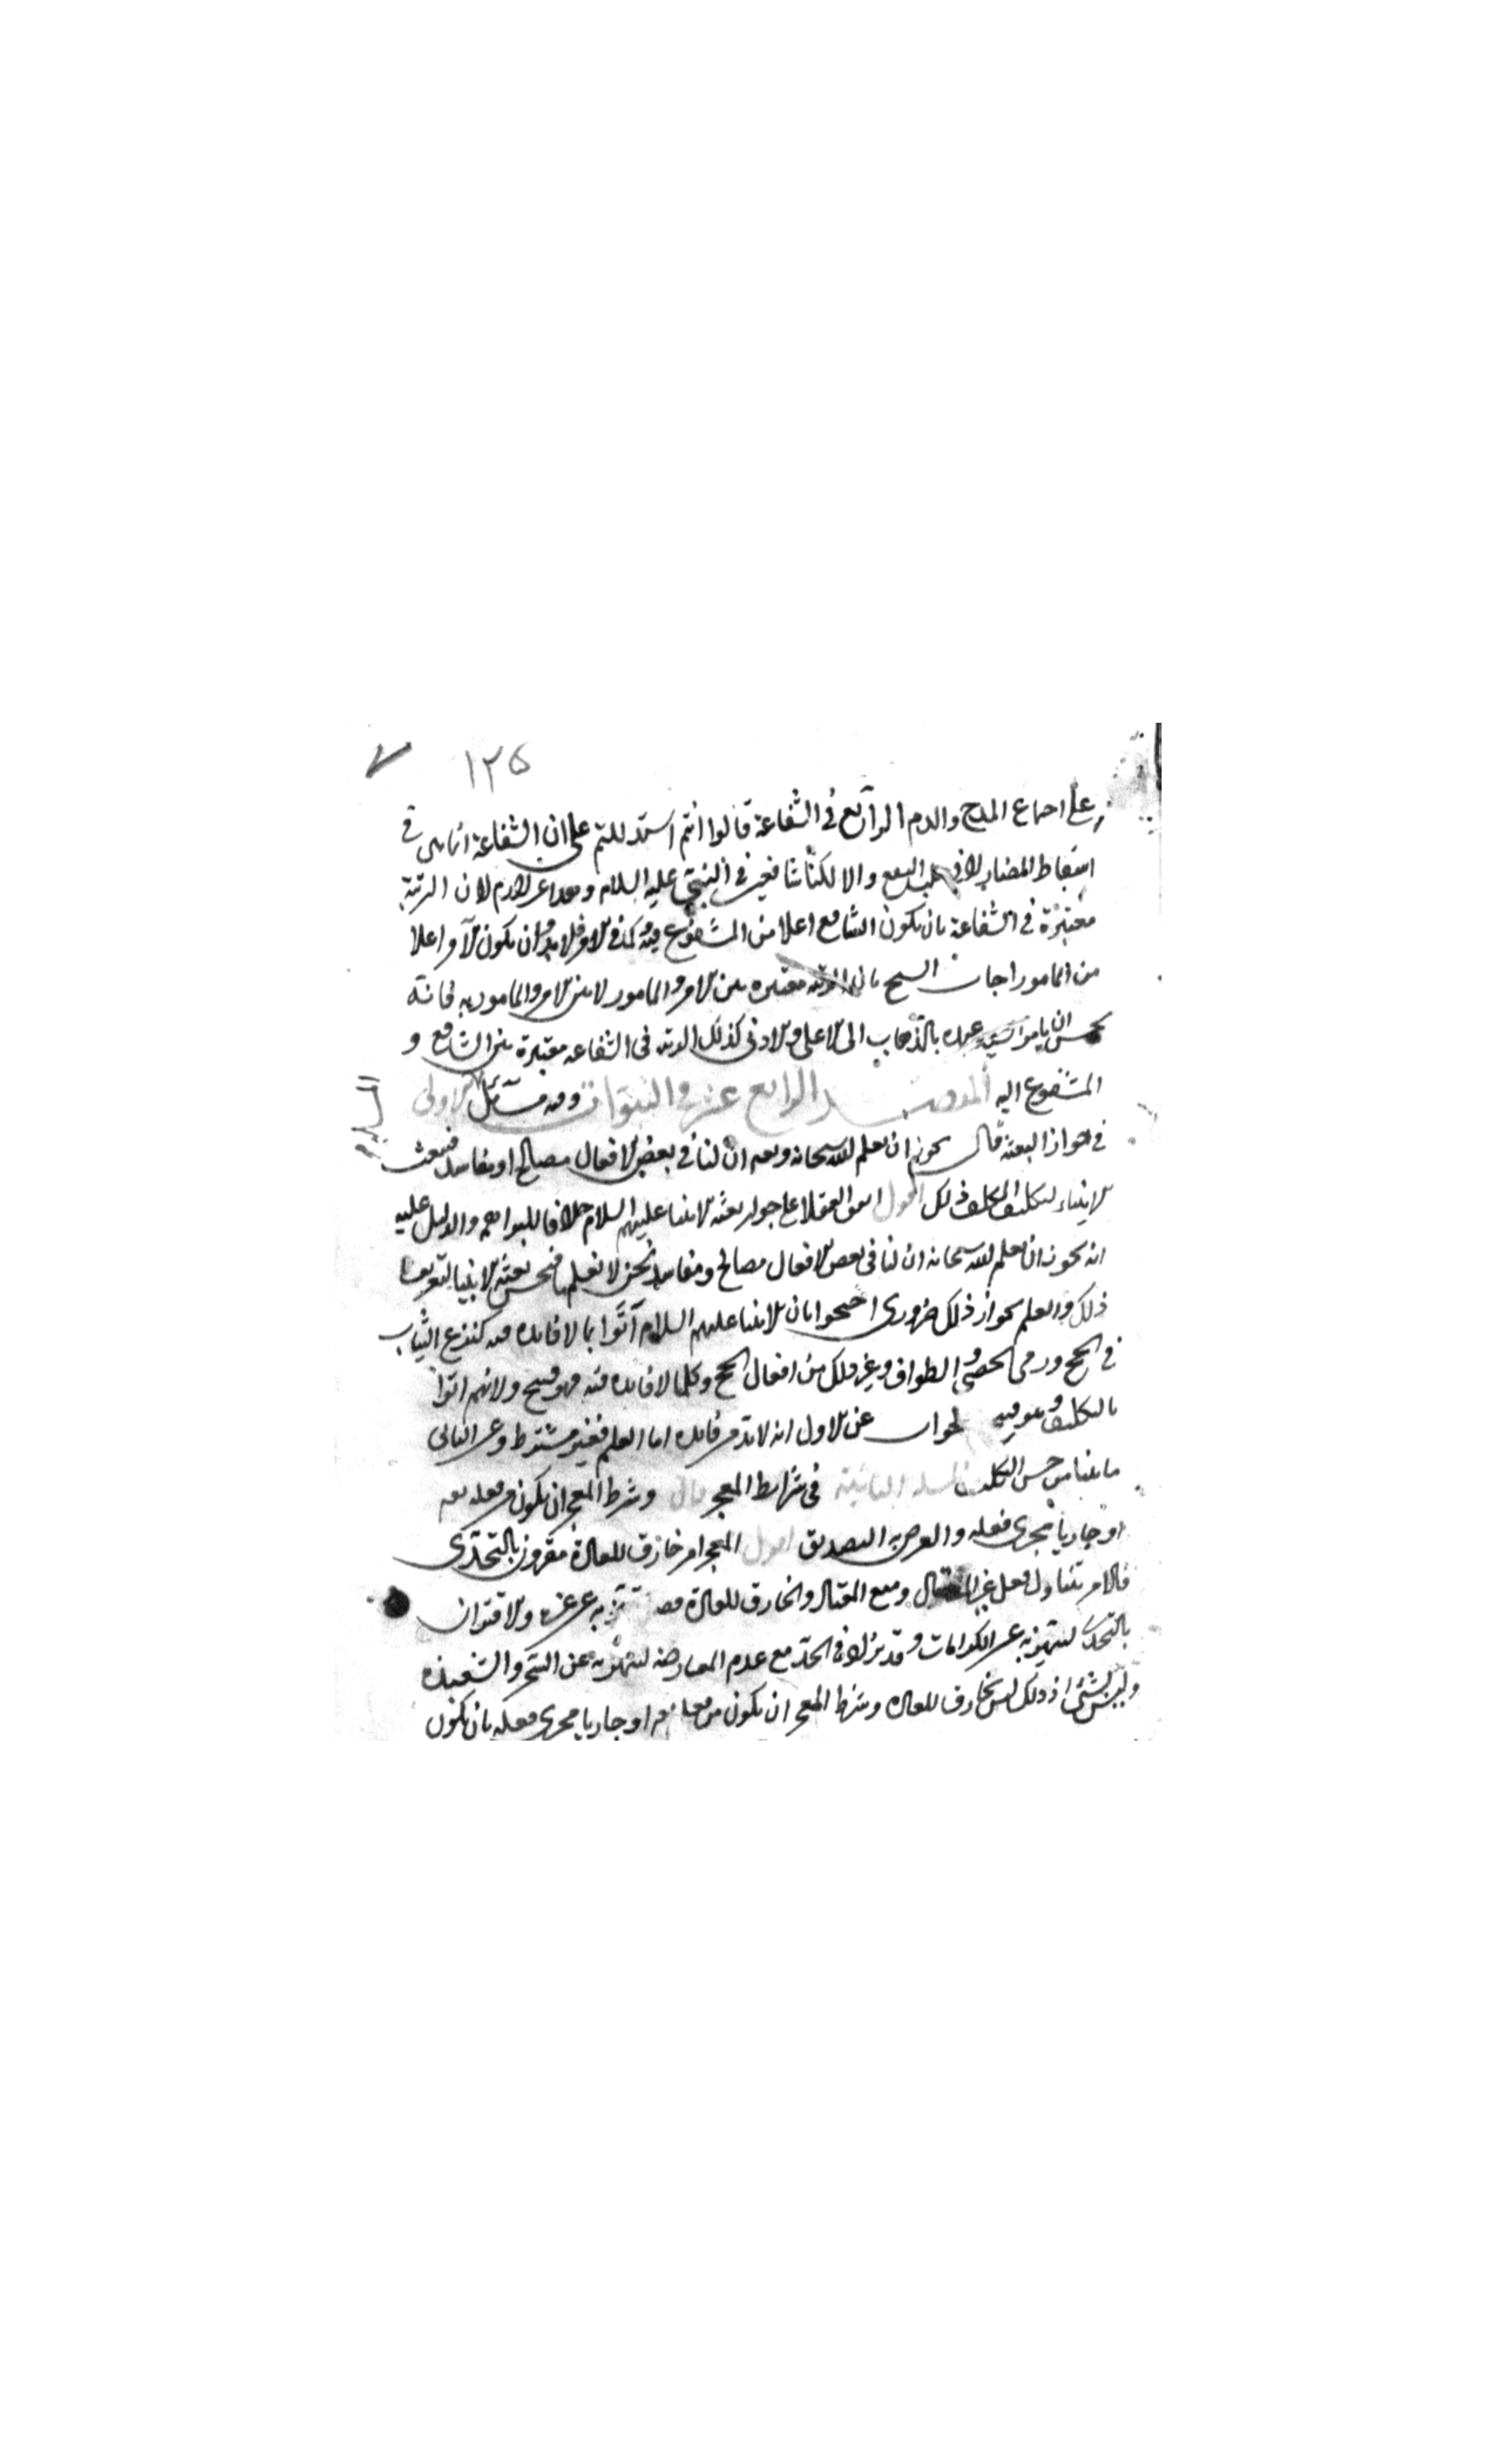 ١٢٥
على اجماع المدح والذم الرابع في الشفاعة قالوا انتم استدللتم على ان الشفاعة انما هي في
اسقاط المضار لا في طلب النفع والا لكنا شافعين في النبي عليه السلام وهذا غير لازم لان الرتبة
معتبرة في الشفاعة بان يكون الشافع اعلا من المشفوع فيه كما في الامر فلابد وان يكون الآمر اعلا
من المامور اجاب الشيخ بان الرتبة معتبرة بين الامر والمامور لا بين الامر والمامور به فانه
يحسن ان يامر السيد عبده بالذهاب الى الاعلى والادنى كذلك الرتبة في الشفاعة معتبرة بين الشافع و
المشفوع اليه المقصد الرابع عشر في النبوات وفيه مسائل الاولى
في جواز البعثة قال يجوز ان يعلم الله سبحانه وتعالى ان لنا في بعض الافعال مصالح او مفاسد فيبعث
الانبياء لتكليف المكلف ذلك اقول اتفق العقلا على جواز بعثة الانبيا عليهم السلام خلافا للبراهمة والدليل عليه
انه يجوز ان يعلم الله سبحانه ان لنا في بعض الافعال مصالح ومفاسد نحن لا نعلمها فتحسن بعثة الانبيا لتعريفنا
ذلك والعلم بجواز ذلك ضروري احتجوا بان الانبيا عليهم السلام أتوا بما لا فائدة فيه كنزع الثياب
في الحج ورمي الحصى والطواف وغير ذلك من افعال الحج وكلما لا فائدة فيه فهو قبيح ولانهم اتوا
بالتكليف وهو قبيح الجواب عن الاول انه لابد من فائدة اما العلم فغير مشترط وعن الثاني
ما بينا من حسن التكليف المسلة الثانية في شرائط المعجز قال وشرط المعجز ان يكون من فعله تعالى
او جاريا مجرى فعله والغرض به التصديق اقول المعجز امر خارق للعادة مقرون بالتحدي
فالامر يتناول فعل غير المعتاد ومنع المعتاد والخارق للعادة به عن غيره والاقتران
بالتحدي لتميزه عن الكرامات وقد يزاد في الحد مع عدم المعارضة لتميزه عن السحر والشعبذة
وليس بشئ اذ ذلك ليس بخارق للعادة وشرط المعجز ان يكون من فعله تعالى او جاريا مجرى فعله بان يكون